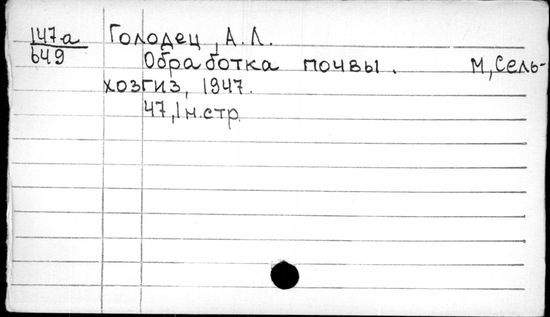 147а Голодец, А.Л.
649 Обработка почвы. М, Сель-
хозгиз, 1947.
47, 1 н.стр.